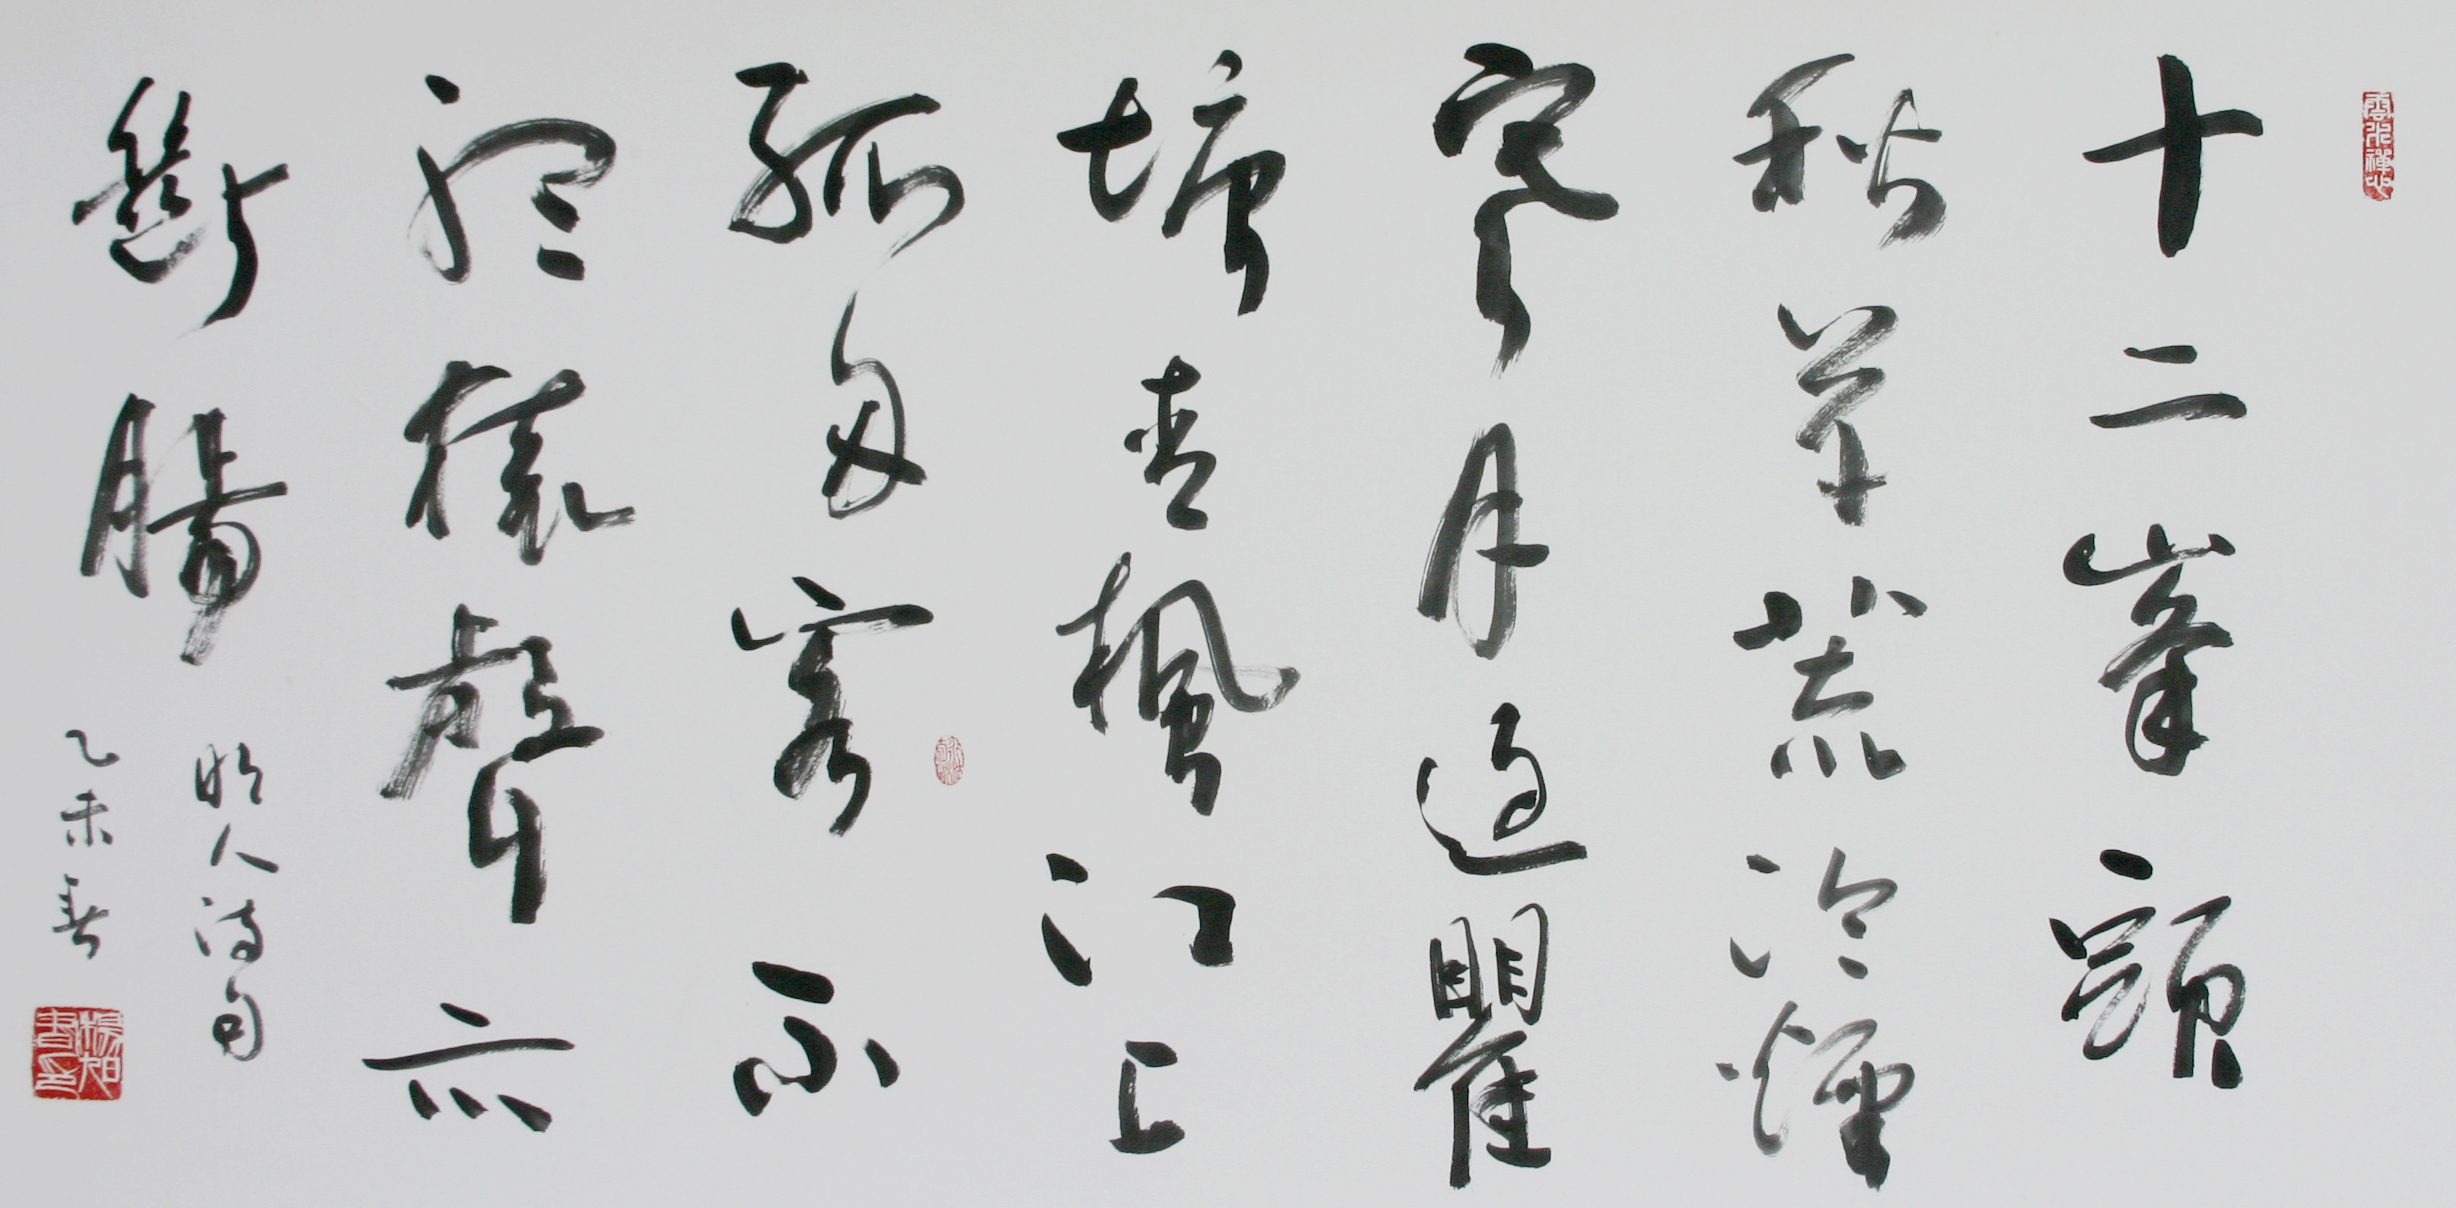 雲水禪心
十二峯頭
秋草荒冷煙
寒月過瞿
塘青楓江上
孤舟客不
聽猿聲亦
斷腸
明人詩句
乙未春